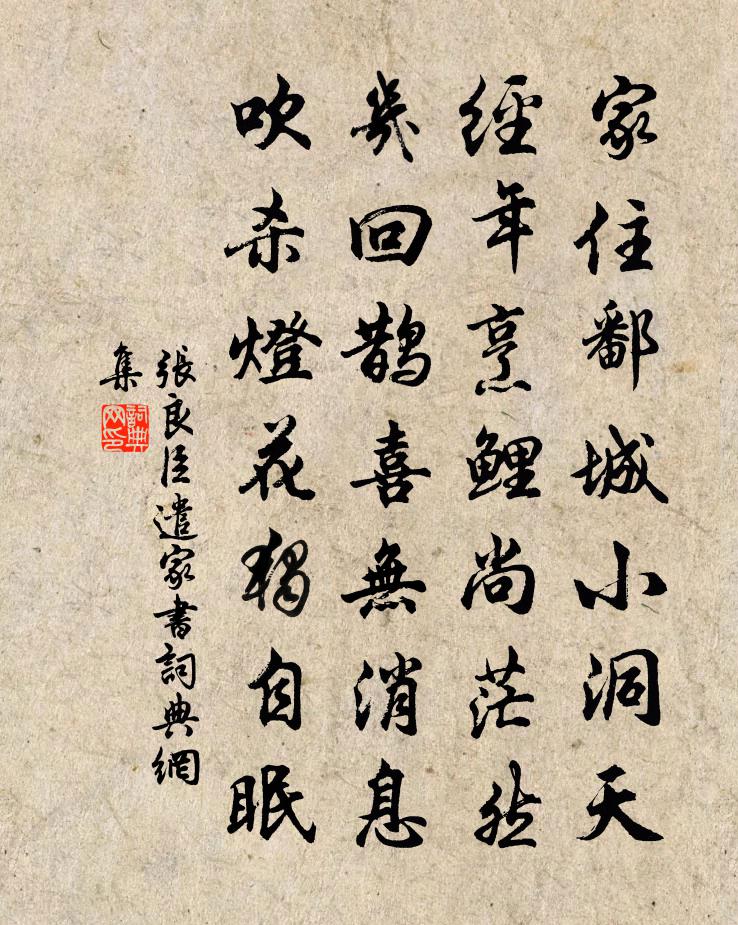 家住鄱城小洞天
經年烹鯉尚茫然
幾回鵲喜無消息
吹杀燈花獨自眠
張良臣遣家書詞典網
集
詞典网印